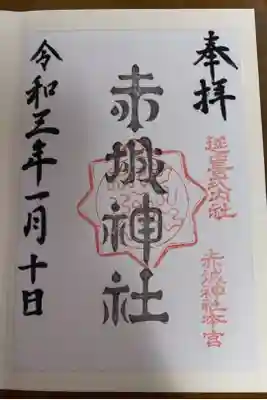 奉拝
延喜式内社
赤城神社本宮
赤城神社
令和三年一月十日